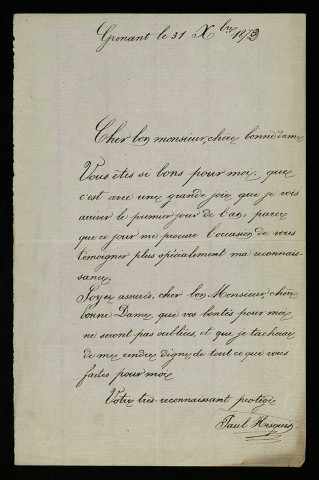 Grenant le 31 Xbre 1873
Cher bon monsieur, chère bonne dame
Vous êtes si bons pour moi, que
c'est avec une grande joie que je vois
arriver le premier jour de l'an, parce
que ce jour me procure l'occasion de vous
témoigner plus spécialement ma reconnais-
sance,
Soyez assurés, cher bon Monsieur, chère
bonne Dame, que vos bontés pour moi
ne seront pas oubliées, et que je tacherai
de me rendre digne de tout ce que vous
faites pour moi
Votre très reconnaissant protégé
Paul